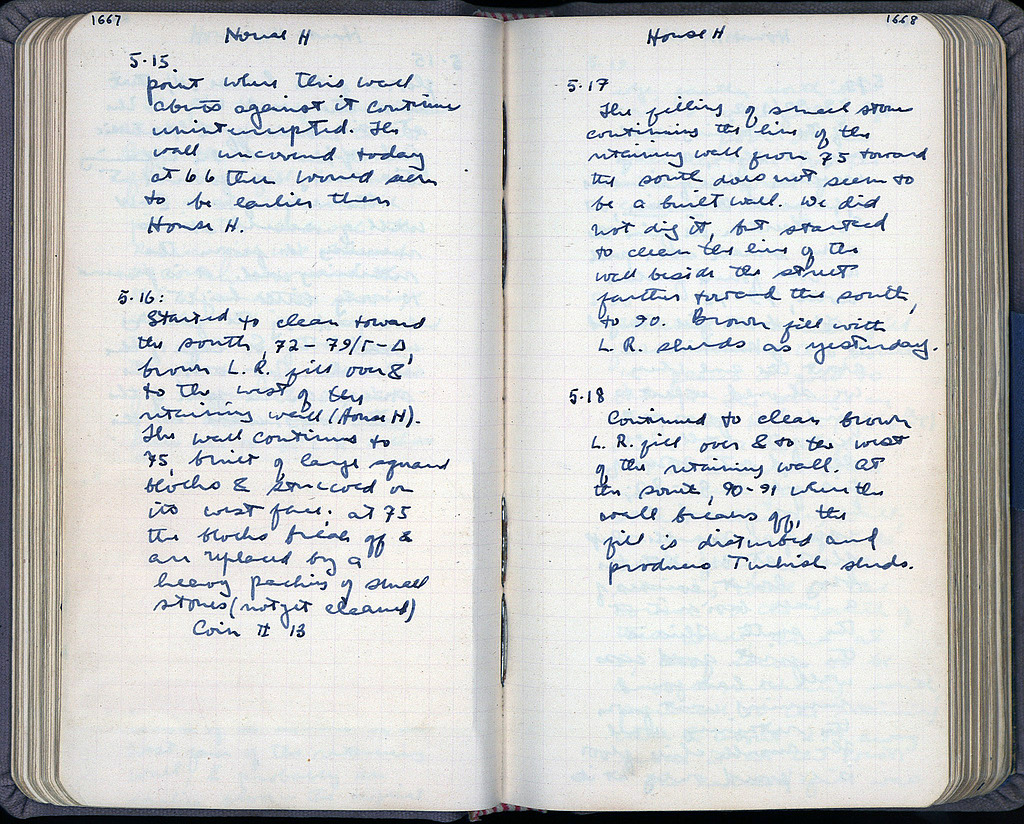 1667
House H
5-15
point where this wall
abuts against it continues
uninterrupted. The
wall uncovered today
at 66 then would seem
to be earlier then
House H.
5-16:
Started to clean toward
the south, 72-79/Γ-Δ,
brown L. R. fill over &
to the west of the
retaining wall (House H).
The wall continues to
75, built of large squared
blocks & stuccoed on
its west face; at 75
the blocks break off &
are replaced by a
heavy packing of small
stones (not yet cleaned)
Coin # 13
1668
House H
5-17
The filling of small stone
continuing the line of the
retaining wall from 75 toward
the south does not seem to
be a built wall. We did
not dig it, but started
to clean the line of the
wall beside the street
farther toward the south,
to 90. Brown fill with
L. R. sherds as yesterday.
5-18
Continued to clean brown
L. R. fill over & to the west
of the retaining wall. At
the south, 90-91 where the
wall breaks off, the
fill is disturbed and
produces Turkish sherds.